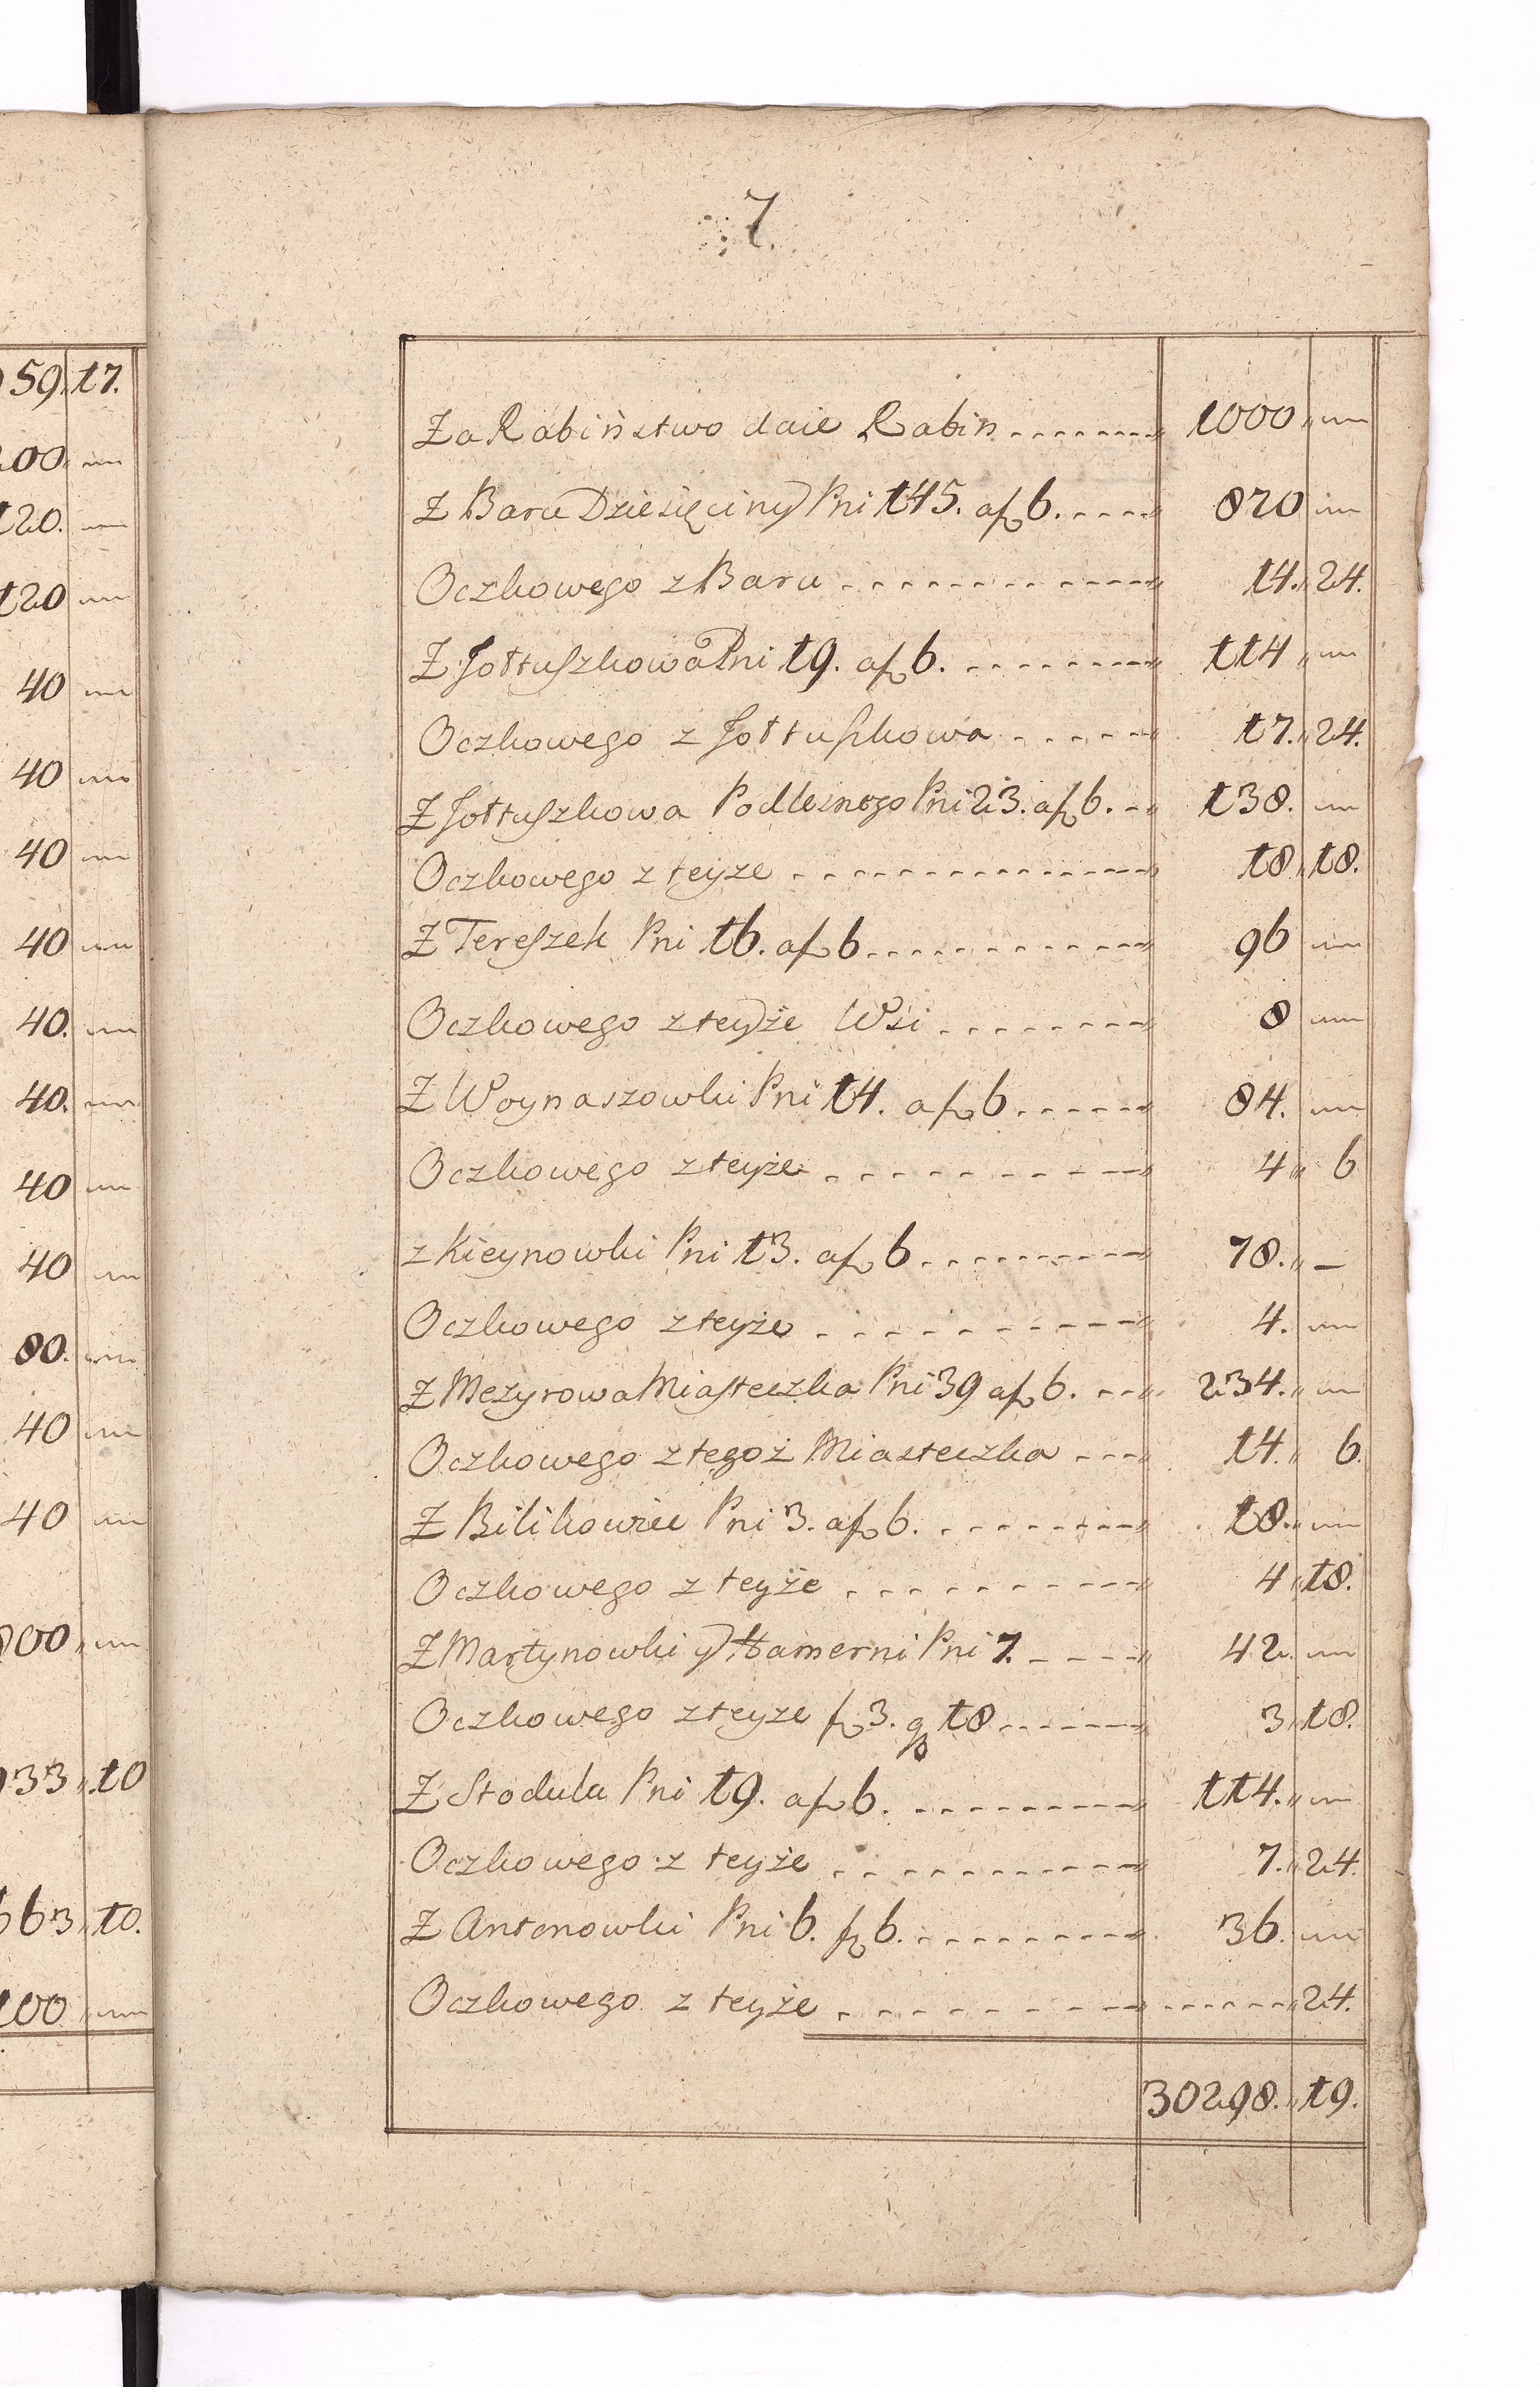 59. 17.
00
120.
120
40
40
40
40
40.
40.
40
40
80.
40
40
800
933 10
663 10.
100
7.
Za Rabiństwo daie Rabin 1000
Z Baru Dziesięciny Pni 145. a f 6. 870
Oczkowego z Baru 14. 24.
Z Jołtuszkowa Pni 19. a f 6. 114
Oczkowego z Jołtuszkowa 17. 24.
Z Jołtuszkowa Podlesnego Pni 23. a f 6. 138.
Oczkowego z teyze 18 18.
Z Tereszek Pni 16. a f 6 96
Oczkowego z teyże Wsi 8
Z Woynaszowki Pni 14. a f 6 84.
Oczkowego z teyże 4 6
z Kieynowki Pni 13. a f 6 78. –
Oczkowego z teyże 4.
Z Mezyrowa Miasteczka Pni 39 a f 6. 234.
Oczkowego z tegoż Miasteczka 14. 6.
Z Bilikowiec Pni 3. a f 6. 18.
Oczkowego z teyże 4 18.
Z Martynowki y Hamerni Pni 7. 42.
Oczkowego z teyze f 3. g 18 3 18.
Z Stodula Pni 19. a f 6. 114.
Oczkowego z teyże 7. 24.
Z Antonowki Pni 6. f 6. 36.
Oczkowego z teyże 24.
30298. 19.